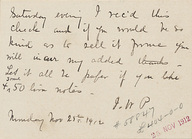 Saturday evening I rec'd this
check and if you would be so
kind as to sell it for me you
will incur my added thanks
Let it all be paper if you like
& some 50 lira notes.
J. W. P.
Monday Nov 25th 1912
# 58847
25 NOV 1912